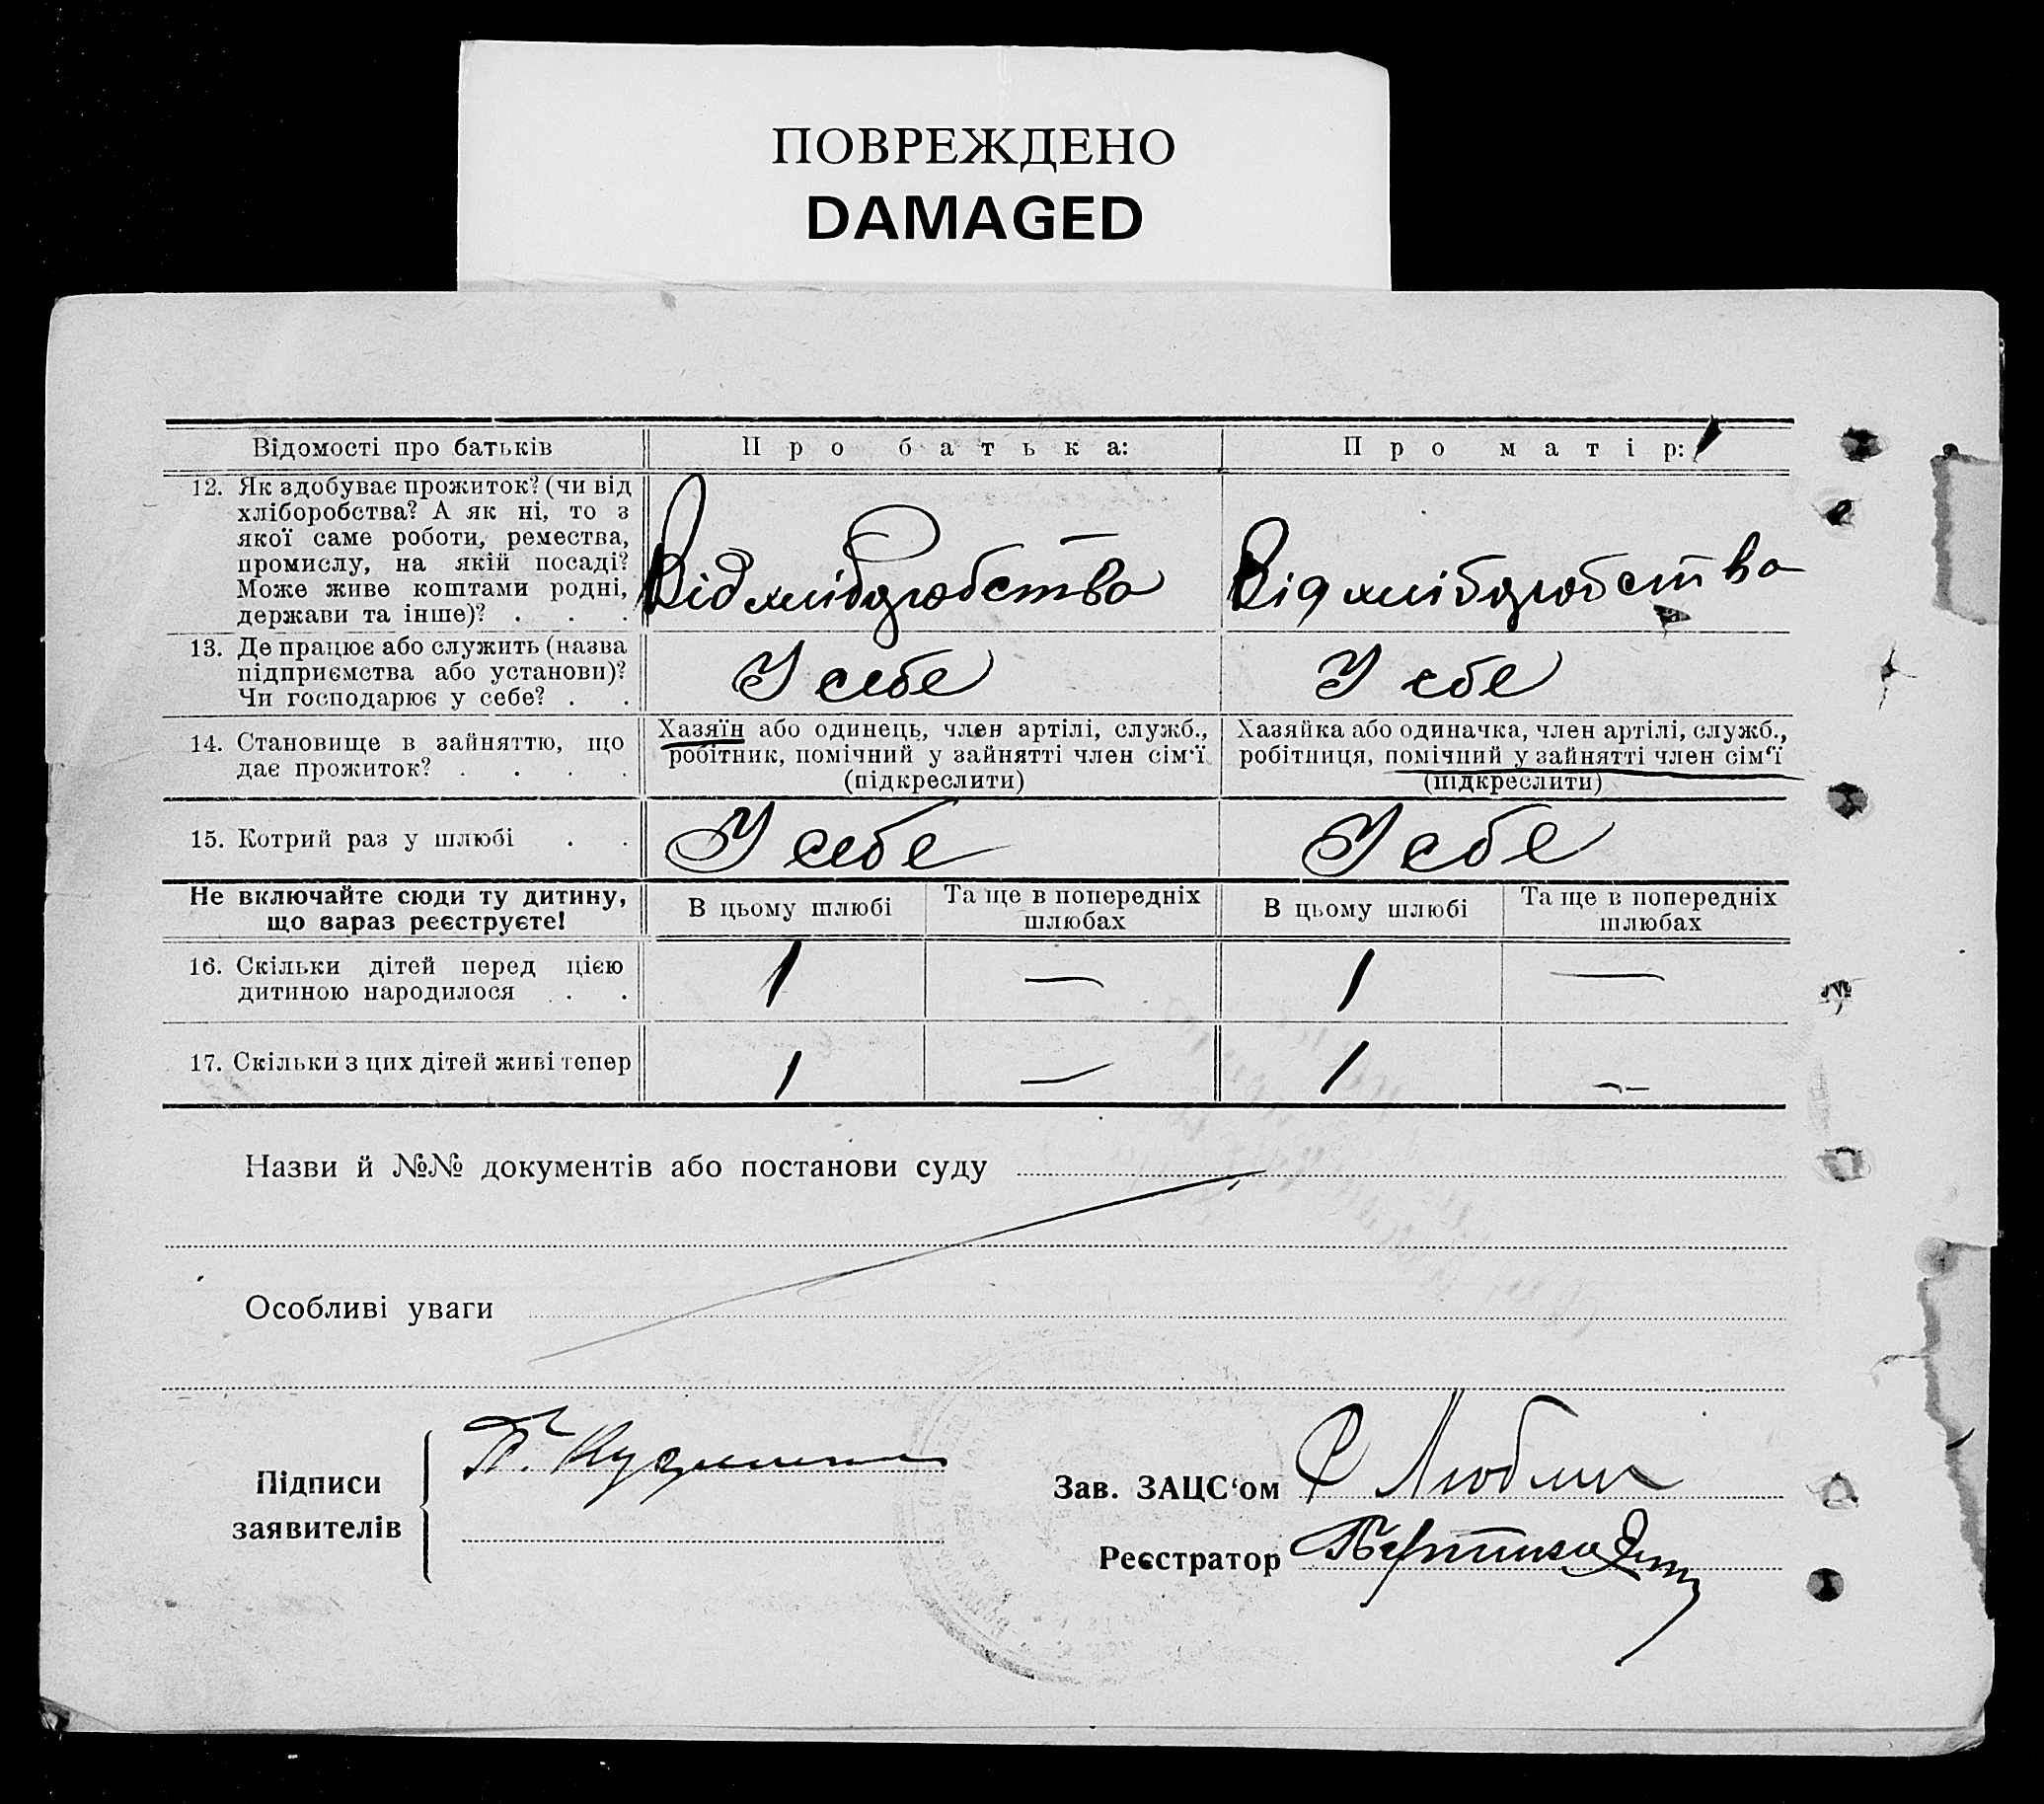 ПОВРЕЖДЕНО
DAMAGED
Відомості про батьків Про батька: Про матір:
12. Як здобуває прожиток? (чи від
хліборобства? А як ні, то з
якої саме роботи, ремества,
промислу, на якій посаді?
Може живе коштами родні,
держави та інше)? . . .
Від хліборобства Від хліборобства
13. Де працює або служить (назва
підприємства або установи)?
Чи господарює у себе? . .
У себе У себе
14. Становище в зайняттю, що
дає прожиток? . . . .
Хазяїн або одинець, член артілі, служб.,
робітник, помічний у зайнятті член сім'ї
(підкреслити)
Хазяйка або одиначка, член артілі, служб.,
робітниця, помічний у зайнятті член сім'ї
(підкреслити)
15. Котрий раз у шлюбі . . У себе У себе
Не включайте сюди ту дитину,
що зараз реєструєте!
В цьому шлюбі
Та ще в попередніх
шлюбах
В цьому шлюбі
Та ще в попередніх
шлюбах
16. Скільки дітей перед цією
дитиною народилося . .
1 — 1 —
17. Скільки з цих дітей живі тепер 1 — 1 —
Назви й №№ документів або постанови суду
Особливі уваги
Підписи
заявителів
Зав. ЗАЦС'ом
Реєстратор